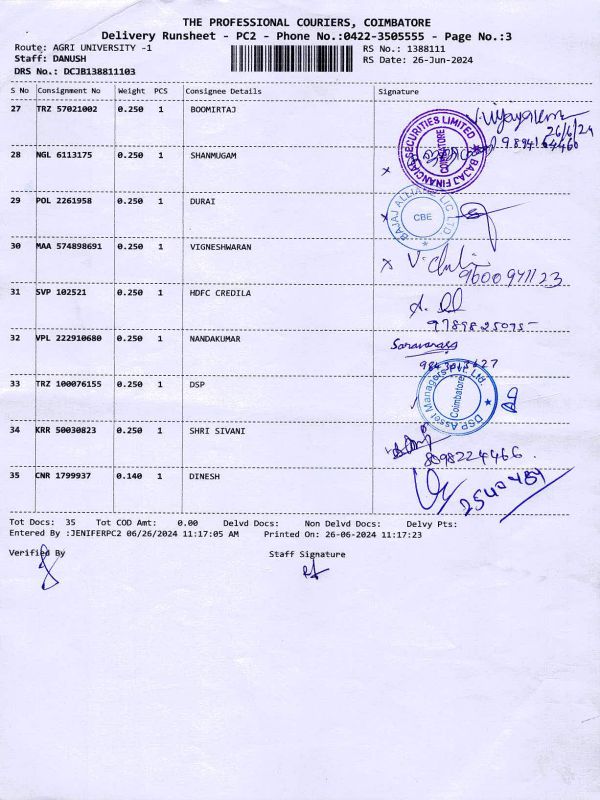 THE PROFESSIONAL COURIERS, COIMBATORE
Delivery Runsheet - PC2 - Phone No.:0422-3505555 - Page No.:3
Route: AGRI UNIVERSITY -1 RS No.: 1388111
Staff: DANUSH RS Date: 26-Jun-2024
DRS No.: DCJB138811103
S No Consignment No Weight PCS Consignee Details Signature
27 TRZ 57021002 0.250 1 BOOMIRTAJ
26/6/24
BAJAJ FINANCIAL SECURITIES LIMITED
COIMBATORE
28 NGL 6113175 0.250 1 SHANMUGAM
x
29 POL 2261958 0.250 1 DURAI
CBE
30 MAA 574898691 0.250 1 VIGNESHWARAN
x
9600941123
31 SVP 102521 0.250 1 HDFC CREDILA
9789825075
32 VPL 222910680 0.250 1 NANDAKUMAR
33 TRZ 100076155 0.250 1 DSP
DSP Asset Managers Pvt. Ltd.
Coimbatore
34 KRR 50030823 0.250 1 SHRI SIVANI
8098224466.
35 CNR 1799937 0.140 1 DINESH
Tot Docs: 35 Tot COD Amt: 0.00 Delvd Docs: Non Delvd Docs: Delvy Pts:
Entered By :JENIFERPC2 06/26/2024 11:17:05 AM Printed On: 26-06-2024 11:17:23
Verified By Staff Signature